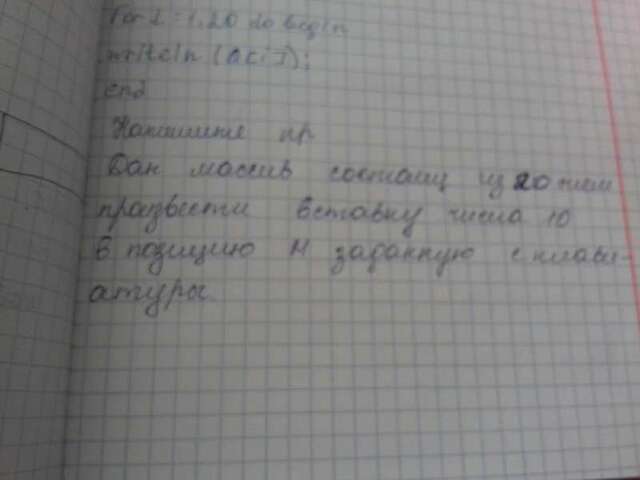 for i:=1,20 do begin
writeln (a[i]);
end
Напишите пр
Дан массив состоящ из 20 чисел
произвести вставку числа 10
в позицию N заданную с клави-
атуры.